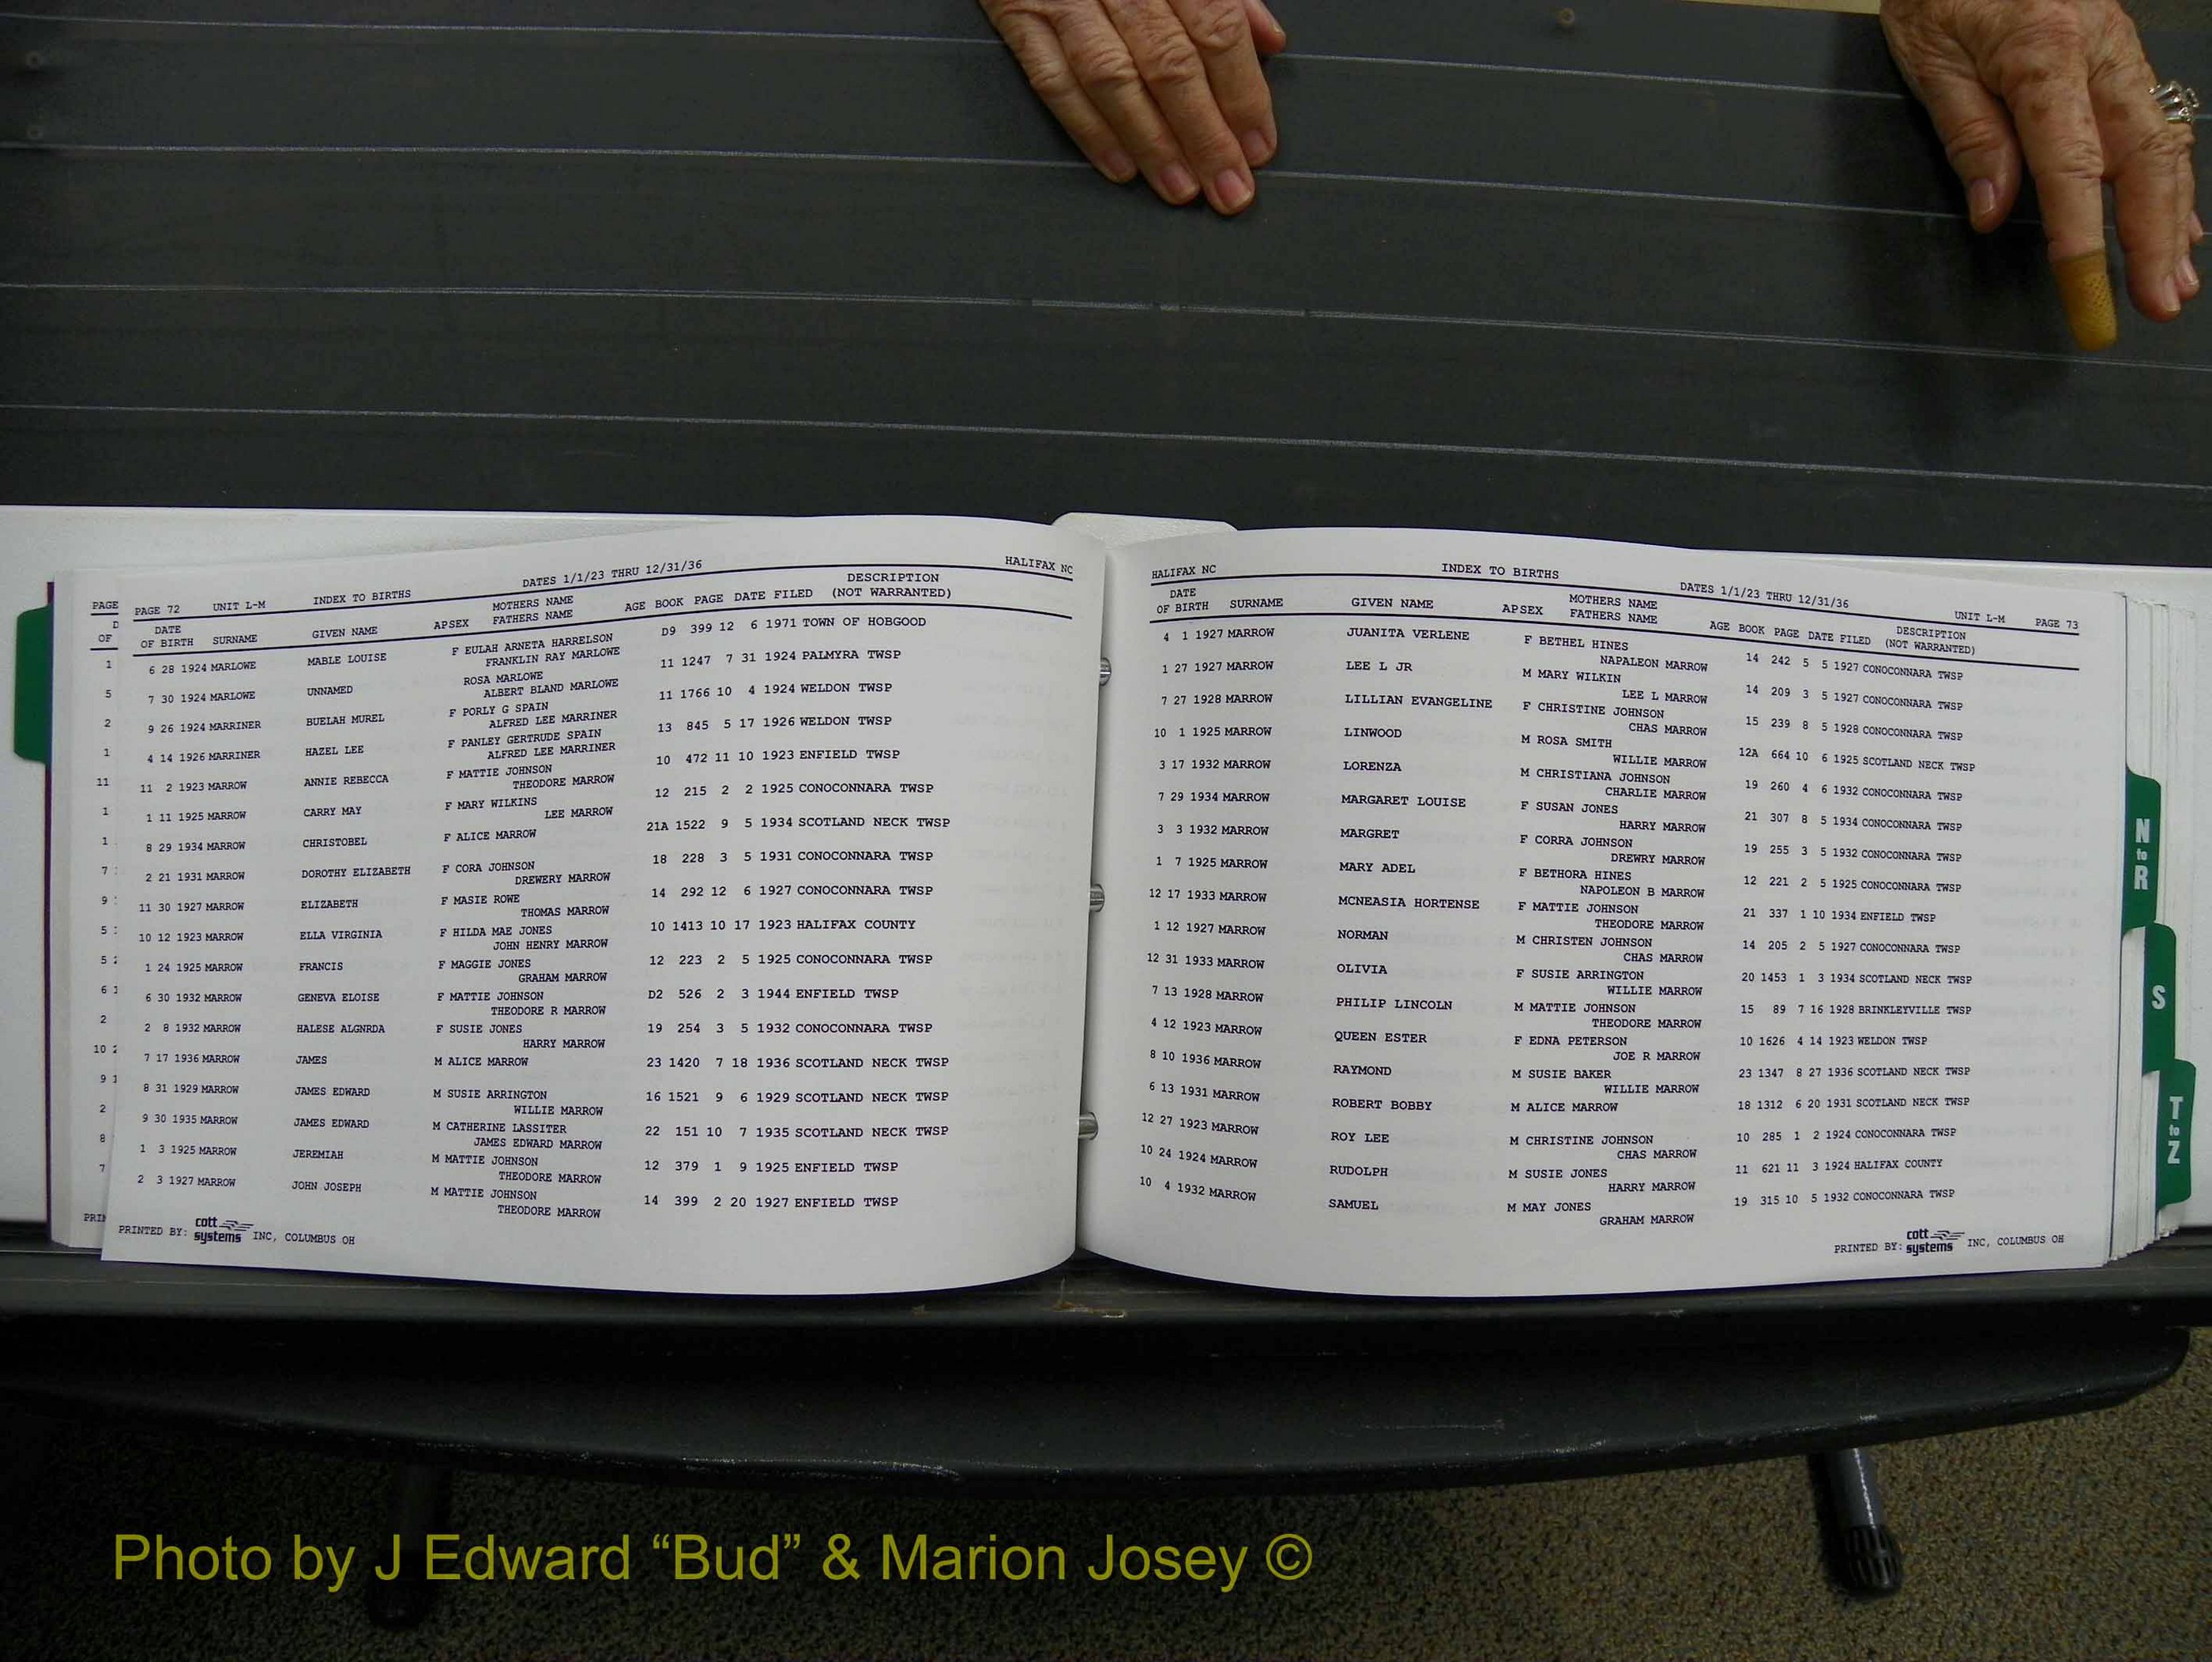 PAGE
D
OF
1
5
2
1
11
1
1
7
9
5
5
6
2
10
9
2
8
7
PRIN
PAGE 72 UNIT L-M INDEX TO BIRTHS DATES 1/1/23 THRU 12/31/36 HALIFAX NC
DATE MOTHERS NAME DESCRIPTION
OF BIRTH SURNAME GIVEN NAME APSEX FATHERS NAME AGE BOOK PAGE DATE FILED (NOT WARRANTED)
6 28 1924 MARLOWE MABLE LOUISE F EULAH ARNETA HARRELSON D9 399 12 6 1971 TOWN OF HOBGOOD
FRANKLIN RAY MARLOWE
7 30 1924 MARLOWE UNNAMED ROSA MARLOWE 11 1247 7 31 1924 PALMYRA TWSP
ALBERT BLAND MARLOWE
9 26 1924 MARRINER BUELAH MUREL F PORLY G SPAIN 11 1766 10 4 1924 WELDON TWSP
ALFRED LEE MARRINER
4 14 1926 MARRINER HAZEL LEE F PANLEY GERTRUDE SPAIN 13 845 5 17 1926 WELDON TWSP
ALFRED LEE MARRINER
11 2 1923 MARROW ANNIE REBECCA F MATTIE JOHNSON 10 472 11 10 1923 ENFIELD TWSP
THEODORE MARROW
1 11 1925 MARROW CARRY MAY F MARY WILKINS 12 215 2 2 1925 CONOCONNARA TWSP
LEE MARROW
8 29 1934 MARROW CHRISTOBEL F ALICE MARROW 21A 1522 9 5 1934 SCOTLAND NECK TWSP
2 21 1931 MARROW DOROTHY ELIZABETH F CORA JOHNSON 18 228 3 5 1931 CONOCONNARA TWSP
DREWERY MARROW
11 30 1927 MARROW ELIZABETH F MASIE ROWE 14 292 12 6 1927 CONOCONNARA TWSP
THOMAS MARROW
10 12 1923 MARROW ELLA VIRGINIA F HILDA MAE JONES 10 1413 10 17 1923 HALIFAX COUNTY
JOHN HENRY MARROW
1 24 1925 MARROW FRANCIS F MAGGIE JONES 12 223 2 5 1925 CONOCONNARA TWSP
GRAHAM MARROW
6 30 1932 MARROW GENEVA ELOISE F MATTIE JOHNSON D2 526 2 3 1944 ENFIELD TWSP
THEODORE R MARROW
2 8 1932 MARROW HALESE ALGNRDA F SUSIE JONES 19 254 3 5 1932 CONOCONNARA TWSP
HARRY MARROW
7 17 1936 MARROW JAMES M ALICE MARROW 23 1420 7 18 1936 SCOTLAND NECK TWSP
8 31 1929 MARROW JAMES EDWARD M SUSIE ARRINGTON 16 1521 9 6 1929 SCOTLAND NECK TWSP
WILLIE MARROW
9 30 1935 MARROW JAMES EDWARD M CATHERINE LASSITER 22 151 10 7 1935 SCOTLAND NECK TWSP
JAMES EDWARD MARROW
1 3 1925 MARROW JEREMIAH M MATTIE JOHNSON 12 379 1 9 1925 ENFIELD TWSP
THEODORE MARROW
2 3 1927 MARROW JOHN JOSEPH M MATTIE JOHNSON 14 399 2 20 1927 ENFIELD TWSP
THEODORE MARROW
PRINTED BY: cott systems INC, COLUMBUS OH
HALIFAX NC INDEX TO BIRTHS DATES 1/1/23 THRU 12/31/36 UNIT L-M PAGE 73
DATE MOTHERS NAME DESCRIPTION
OF BIRTH SURNAME GIVEN NAME APSEX FATHERS NAME AGE BOOK PAGE DATE FILED (NOT WARRANTED)
4 1 1927 MARROW JUANITA VERLENE F BETHEL HINES 14 242 5 5 1927 CONOCONNARA TWSP
NAPALEON MARROW
1 27 1927 MARROW LEE L JR M MARY WILKIN 14 209 3 5 1927 CONOCONNARA TWSP
LEE L MARROW
7 27 1928 MARROW LILLIAN EVANGELINE F CHRISTINE JOHNSON 15 239 8 5 1928 CONOCONNARA TWSP
CHAS MARROW
10 1 1925 MARROW LINWOOD M ROSA SMITH 12A 664 10 6 1925 SCOTLAND NECK TWSP
WILLIE MARROW
3 17 1932 MARROW LORENZA M CHRISTIANA JOHNSON 19 260 4 6 1932 CONOCONNARA TWSP
CHARLIE MARROW
7 29 1934 MARROW MARGARET LOUISE F SUSAN JONES 21 307 8 5 1934 CONOCONNARA TWSP
HARRY MARROW
3 3 1932 MARROW MARGRET F CORRA JOHNSON 19 255 3 5 1932 CONOCONNARA TWSP
DREWRY MARROW
1 7 1925 MARROW MARY ADEL F BETHORA HINES 12 221 2 5 1925 CONOCONNARA TWSP
NAPOLEON B MARROW
12 17 1933 MARROW MCNEASIA HORTENSE F MATTIE JOHNSON 21 337 1 10 1934 ENFIELD TWSP
THEODORE MARROW
1 12 1927 MARROW NORMAN M CHRISTEN JOHNSON 14 205 2 5 1927 CONOCONNARA TWSP
CHAS MARROW
12 31 1933 MARROW OLIVIA F SUSIE ARRINGTON 20 1453 1 3 1934 SCOTLAND NECK TWSP
WILLIE MARROW
7 13 1928 MARROW PHILIP LINCOLN M MATTIE JOHNSON 15 89 7 16 1928 BRINKLEYVILLE TWSP
THEODORE MARROW
4 12 1923 MARROW QUEEN ESTER F EDNA PETERSON 10 1626 4 14 1923 WELDON TWSP
JOE R MARROW
8 10 1936 MARROW RAYMOND M SUSIE BAKER 23 1347 8 27 1936 SCOTLAND NECK TWSP
WILLIE MARROW
6 13 1931 MARROW ROBERT BOBBY M ALICE MARROW 18 1312 6 20 1931 SCOTLAND NECK TWSP
12 27 1923 MARROW ROY LEE M CHRISTINE JOHNSON 10 285 1 2 1924 CONOCONNARA TWSP
CHAS MARROW
10 24 1924 MARROW RUDOLPH M SUSIE JONES 11 621 11 3 1924 HALIFAX COUNTY
HARRY MARROW
10 4 1932 MARROW SAMUEL M MAY JONES 19 315 10 5 1932 CONOCONNARA TWSP
GRAHAM MARROW
PRINTED BY: cott systems INC, COLUMBUS OH
N to R
S
T to Z
Photo by J Edward “Bud” & Marion Josey ©